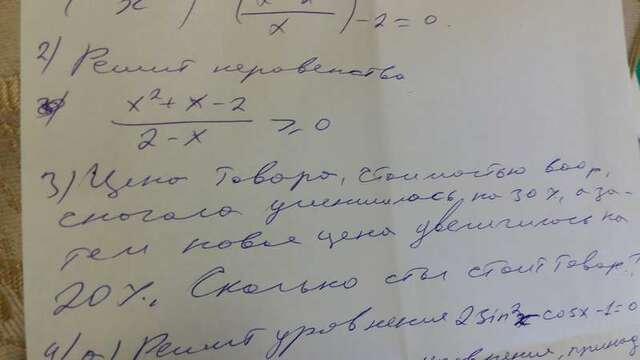 x ) (x / x) - 2 = 0.
2) Решит неравенство
x²+x-2 / 2-x ≥ 0
3) Цена товара, стоимостью 600р,
сначала уменшилась на 30%, а за-
тем новая цена увеличилось на
20%. Сколько сты стоит товар?
4) а) Решит уровнения 2sin²x-cosx-1=0